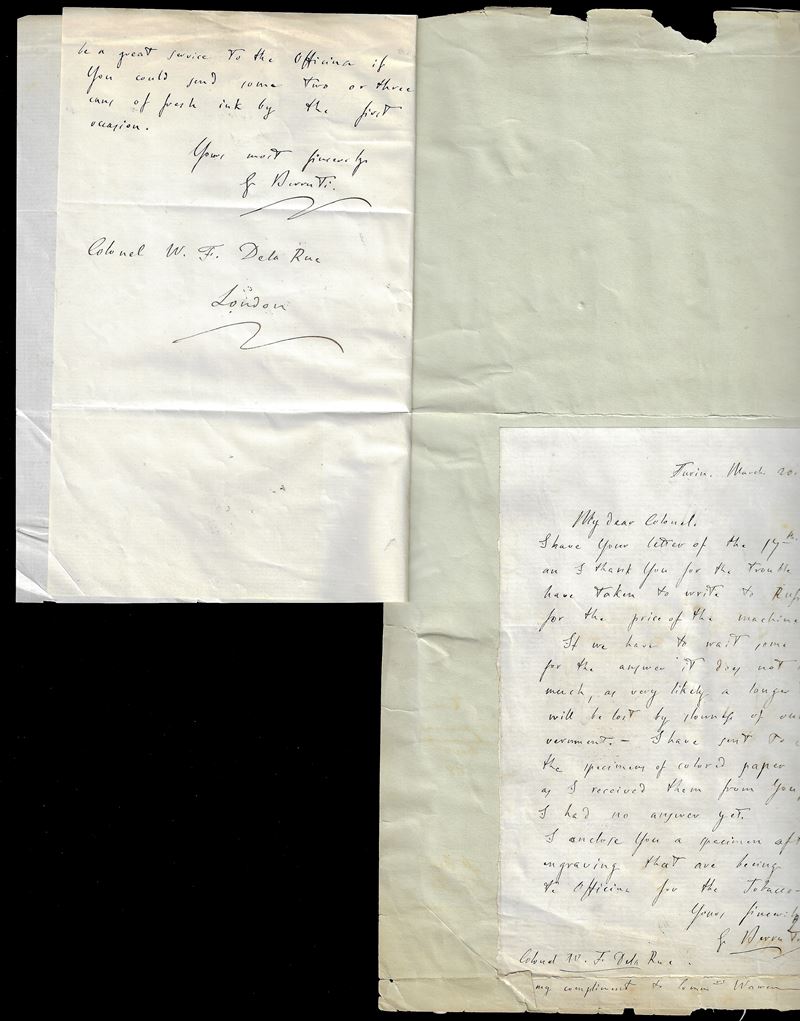 be a great service to the Officina if
You could send some two or three
cans of fresh ink by the first
occasion.
Yours most sincerely
G Berruti.
Colonel W. F. Dela Rue
London
Turin. March 20.
My dear Colonel.
I have Your letter of the 17th.
an I thank You for the trouble
have taken to write to
for the price of the machine
If we have to wait some
for the answer it does not
much, as very likely a longer
will be lost by slowness of our
vernment. – I have sent to
the specimens of colored paper
as I received them from You,
I had no answer yet.
I enclose You a specimen of
engraving that are being
Officina for the Tobacco-
Yours sincerely
G. Berruti.
Colonel W. F. Dela Rue.
my compliment to